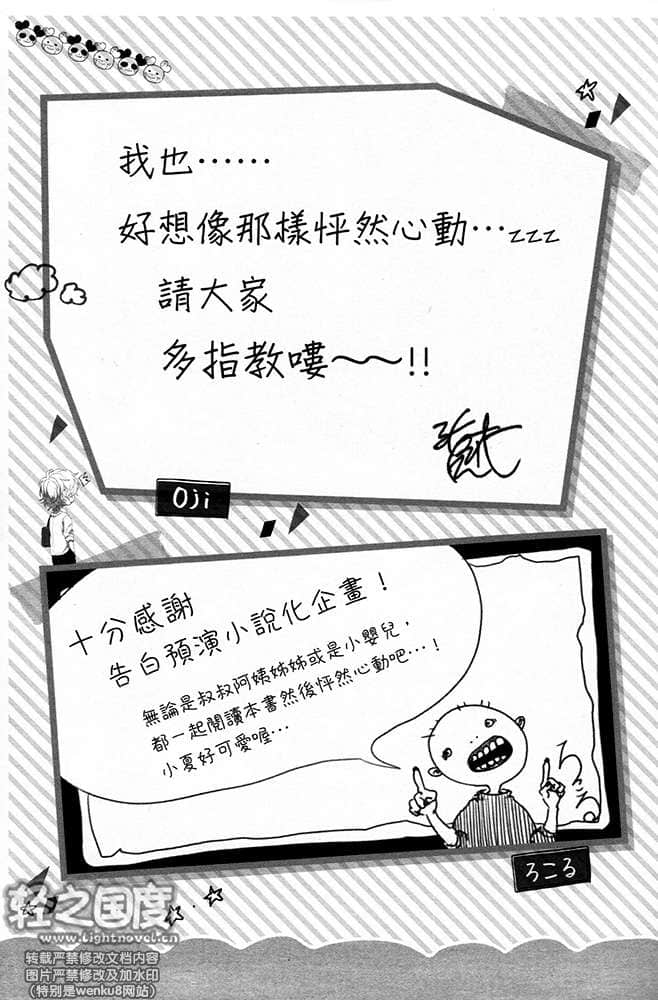 我也……
好想像那樣怦然心動…zzz
請大家
多指教嘍～～!!
Oji
十分感謝
告白預演小說化企畫！
無論是叔叔阿姨姊姊或是小嬰兒，
都一起閱讀本書然後怦然心動吧…！
小夏好可愛喔…
ろこる
ろこる
轻之国度
www.lightnovel.cn
转载严禁修改文档内容
图片严禁修改及加水印
（特别是wenku8网站）